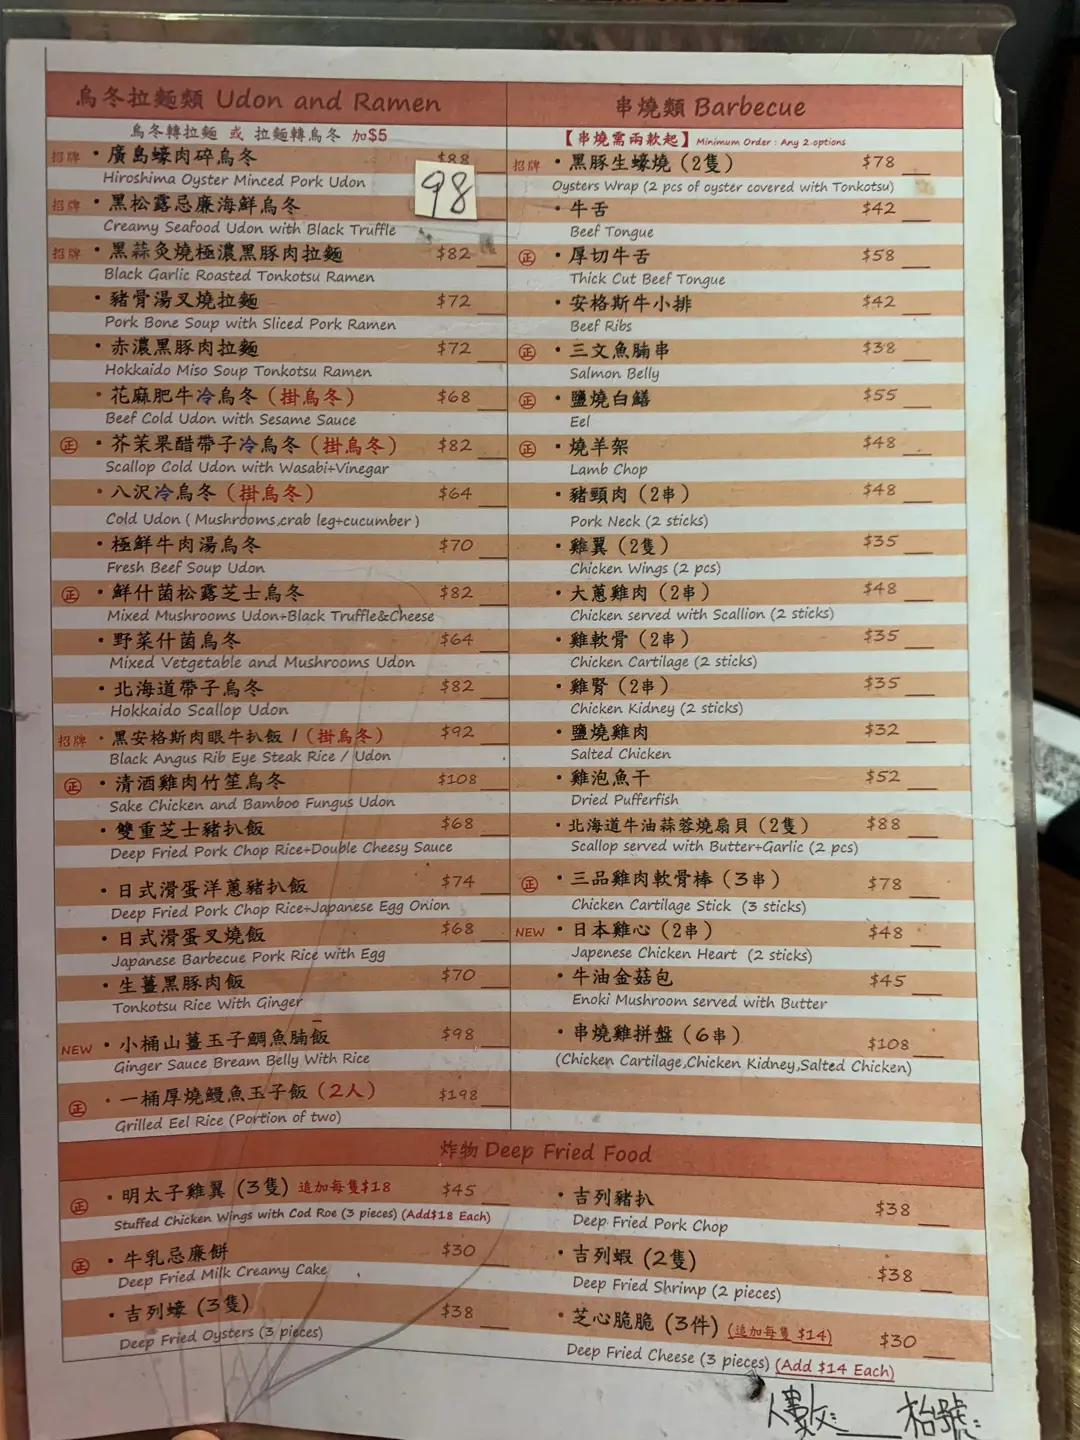 烏冬拉麵類 Udon and Ramen
烏冬轉拉麵 或 拉麵轉烏冬 加$5
招牌 • 廣島蠔肉碎烏冬 $88
Hiroshima Oyster Minced Pork Udon
98
招牌 • 黑松露忌廉海鮮烏冬
Creamy Seafood Udon with Black Truffle
招牌 • 黑蒜炙燒極濃黑豚肉拉麵 $82
Black Garlic Roasted Tonkotsu Ramen
• 豬骨湯叉燒拉麵 $72
Pork Bone Soup with Sliced Pork Ramen
• 赤濃黑豚肉拉麵 $72
Hokkaido Miso Soup Tonkotsu Ramen
• 花麻肥牛冷烏冬 (掛烏冬) $68
Beef Cold Udon with Sesame Sauce
正 • 芥茉果醋帶子冷烏冬 (掛烏冬) $82
Scallop Cold Udon with Wasabi+Vinegar
• 八沢冷烏冬 (掛烏冬) $64
Cold Udon ( Mushrooms,crab leg+cucumber )
• 極鮮牛肉湯烏冬 $70
Fresh Beef Soup Udon
正 • 鮮什菌松露芝士烏冬 $82
Mixed Mushrooms Udon+Black Truffle&Cheese
• 野菜什菌烏冬 $64
Mixed Vetgetable and Mushrooms Udon
• 北海道帶子烏冬 $82
Hokkaido Scallop Udon
招牌 • 黑安格斯肉眼牛扒飯 / (掛烏冬) $92
Black Angus Rib Eye Steak Rice / Udon
正 • 清酒雞肉竹笙烏冬 $108
Sake Chicken and Bamboo Fungus Udon
• 雙重芝士豬扒飯 $68
Deep Fried Pork Chop Rice+Double Cheesy Sauce
• 日式滑蛋洋蔥豬扒飯 $74
Deep Fried Pork Chop Rice+Japanese Egg Onion
• 日式滑蛋叉燒飯 $68
Japanese Barbecue Pork Rice with Egg
• 生薑黑豚肉飯 $70
Tonkotsu Rice With Ginger
NEW • 小桶山薑玉子鯛魚腩飯 $98
Ginger Sauce Bream Belly With Rice
正 • 一桶厚燒鰻魚玉子飯 (2人) $198
Grilled Eel Rice (Portion of two)
串燒類 Barbecue
【串燒需兩款起】Minimum Order : Any 2 options
招牌 • 黑豚生蠔燒 (2隻) $78
Oysters Wrap (2 pcs of oyster covered with Tonkotsu)
• 牛舌 $42
Beef Tongue
正 • 厚切牛舌 $58
Thick Cut Beef Tongue
• 安格斯牛小排 $42
Beef Ribs
正 • 三文魚腩串 $38
Salmon Belly
正 • 鹽燒白鱔 $55
Eel
正 • 燒羊架 $48
Lamb Chop
• 豬頸肉 (2串) $48
Pork Neck (2 sticks)
• 雞翼 (2隻) $35
Chicken Wings (2 pcs)
• 大蔥雞肉 (2串) $48
Chicken served with Scallion (2 sticks)
• 雞軟骨 (2串) $35
Chicken Cartilage (2 sticks)
• 雞腎 (2串) $35
Chicken Kidney (2 sticks)
• 鹽燒雞肉 $32
Salted Chicken
• 雞泡魚干 $52
Dried Pufferfish
• 北海道牛油蒜蓉燒扇貝 (2隻) $88
Scallop served with Butter+Garlic (2 pcs)
正 • 三品雞肉軟骨棒 (3串) $78
Chicken Cartilage Stick (3 sticks)
NEW • 日本雞心 (2串) $48
Japenese Chicken Heart (2 sticks)
• 牛油金菇包 $45
Enoki Mushroom served with Butter
• 串燒雞拼盤 (6串) $108
(Chicken Cartilage,Chicken Kidney,Salted Chicken)
炸物 Deep Fried Food
正 • 明太子雞翼 (3隻) 追加每隻$18 $45
Stuffed Chicken Wings with Cod Roe (3 pieces) (Add$18 Each)
正 • 牛乳忌廉餅 $30
Deep Fried Milk Creamy Cake
• 吉列蠔 (3隻) $38
Deep Fried Oysters (3 pieces)
• 吉列豬扒 $38
Deep Fried Pork Chop
• 吉列蝦 (2隻) $38
Deep Fried Shrimp (2 pieces)
• 芝心脆脆 (3件) (追加每隻 $14) $30
Deep Fried Cheese (3 pieces) (Add $14 Each)
人數: 枱號: